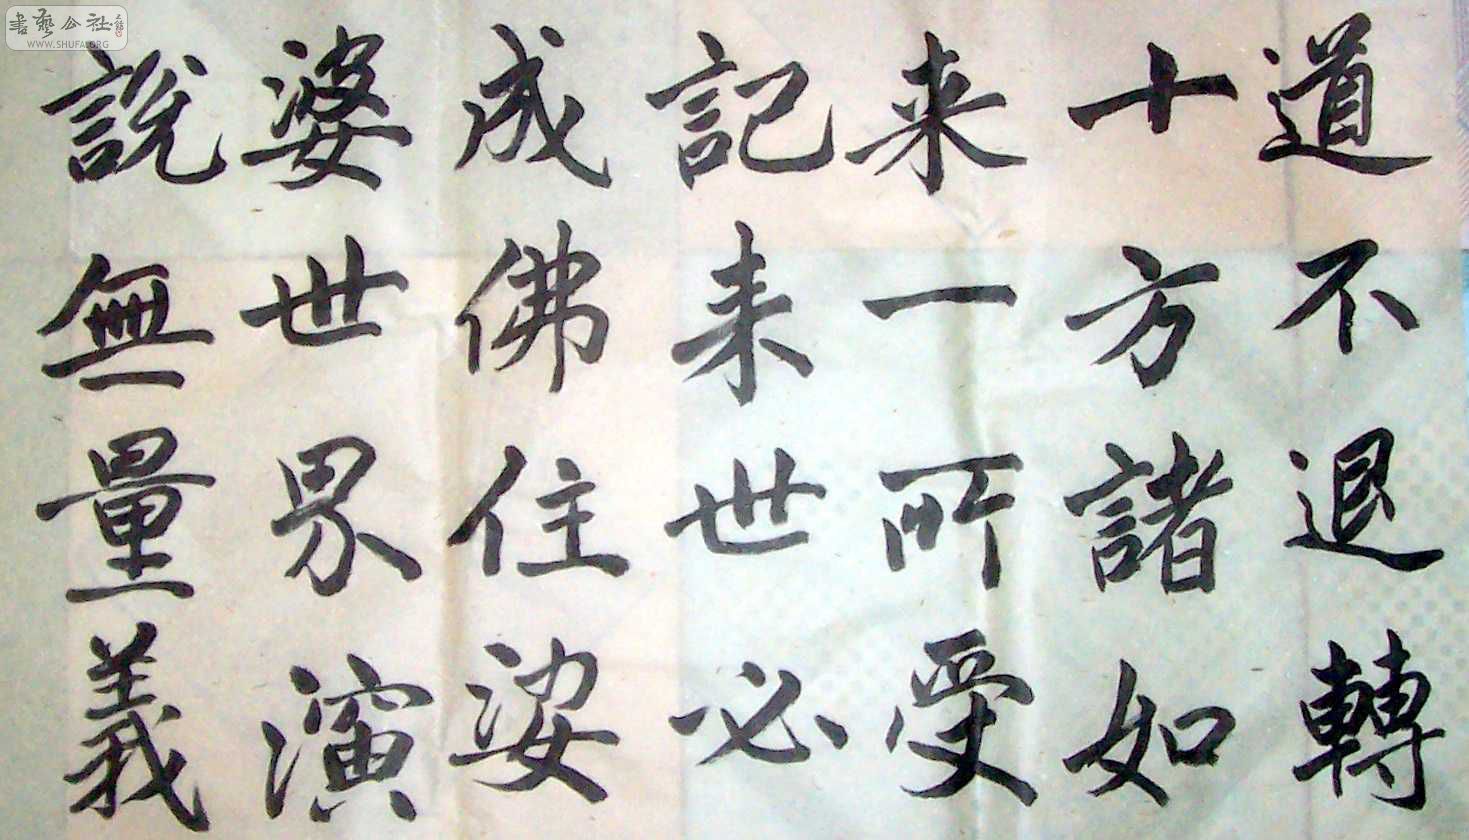 道不退轉
十方諸如
来一所受
記来世必
成佛住娑
婆世界演
說無量義
書藝公社
WWW.SHUFA.ORG